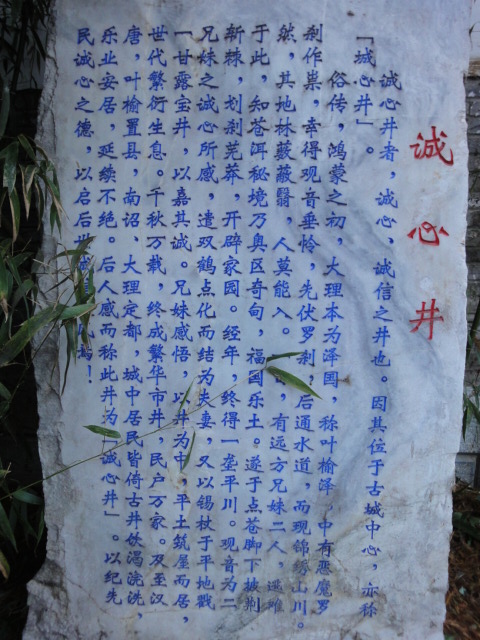 诚心井
诚心井者，诚心、诚信之井也。因其位于古城中心，亦称
「城心井」。
俗传，鸿蒙之初，大理本为泽国，称叶榆泽，中有恶魔罗
刹作祟，幸得观音垂怜，先伏罗刹，后通水道，而现锦绣山川。
然，其地林薮蔽翳，人莫能入。有远方兄妹二人
于此，知苍洱秘境乃奥区奇甸，福国乐土。遂于点苍脚下披荆
斩棘，划刹芜莽，开辟家园。经年，终得一垄平川。观音为二
兄妹之诚心所感，遣双鹤点化而结为夫妻，又以锡杖于平地戳
一「甘露宝井」，以嘉其诚。兄妹感悟，以井为中，平土筑屋而居，
世代繁衍生息。千秋万载，终成繁华市井，民户万家。及至汉
唐，叶榆置县，南诏、大理定都，城中居民皆倚古井饮渴浣洗，
乐业安居，延续不绝。后人感而称此井为「诚心井」。以纪先
民诚心之德，以启后世焉！